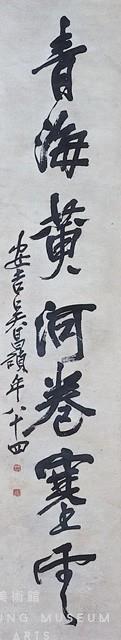 青海黄河卷塞雲
安吉吳昌碩年八十四
美術館
UNG MUSEUM
ARTS